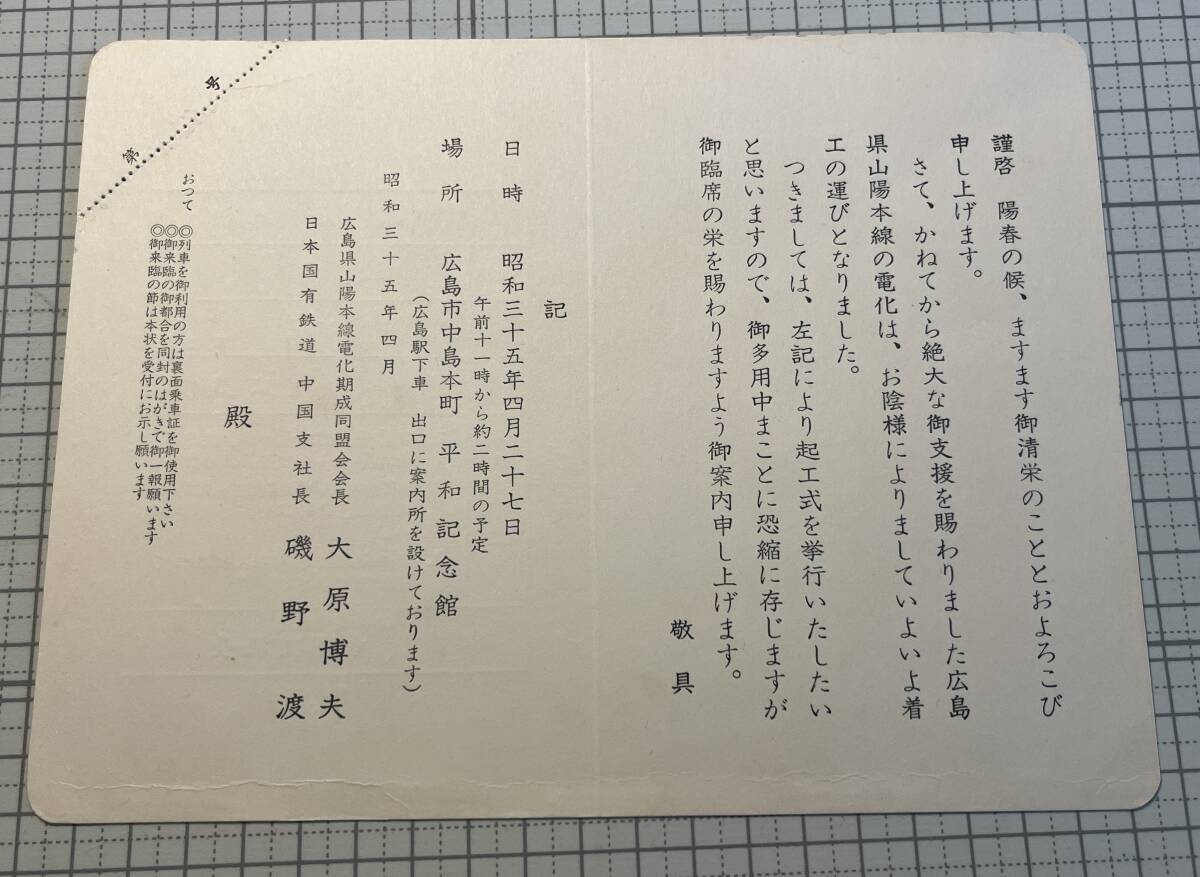 謹啓　陽春の候、ますます御清栄のこととおよろこび
申し上げます。
さて、かねてから絶大な御支援を賜わりました広島
県山陽本線の電化は、お陰様によりましていよいよ着
工の運びとなりました。
つきましては、左記により起工式を挙行いたしたい
と思いますので、御多用中まことに恐縮に存じますが
御臨席の栄を賜わりますよう御案内申し上げます。
敬具
記
日時　昭和三十五年四月二十七日
午前十一時から約二時間の予定
場所　広島市中島本町　平和記念館
（広島駅下車　出口に案内所を設けております）
昭和三十五年四月
広島県山陽本線電化期成同盟会会長　大原博夫
日本国有鉄道　中国支社長　磯野渡
殿
おつて　◎列車を御利用の方は裏面乗車証を御使用下さい
◎御来臨の御都合を同封のはがきで御一報願います
◎御来臨の節は本状を受付にお示し願います
第　号